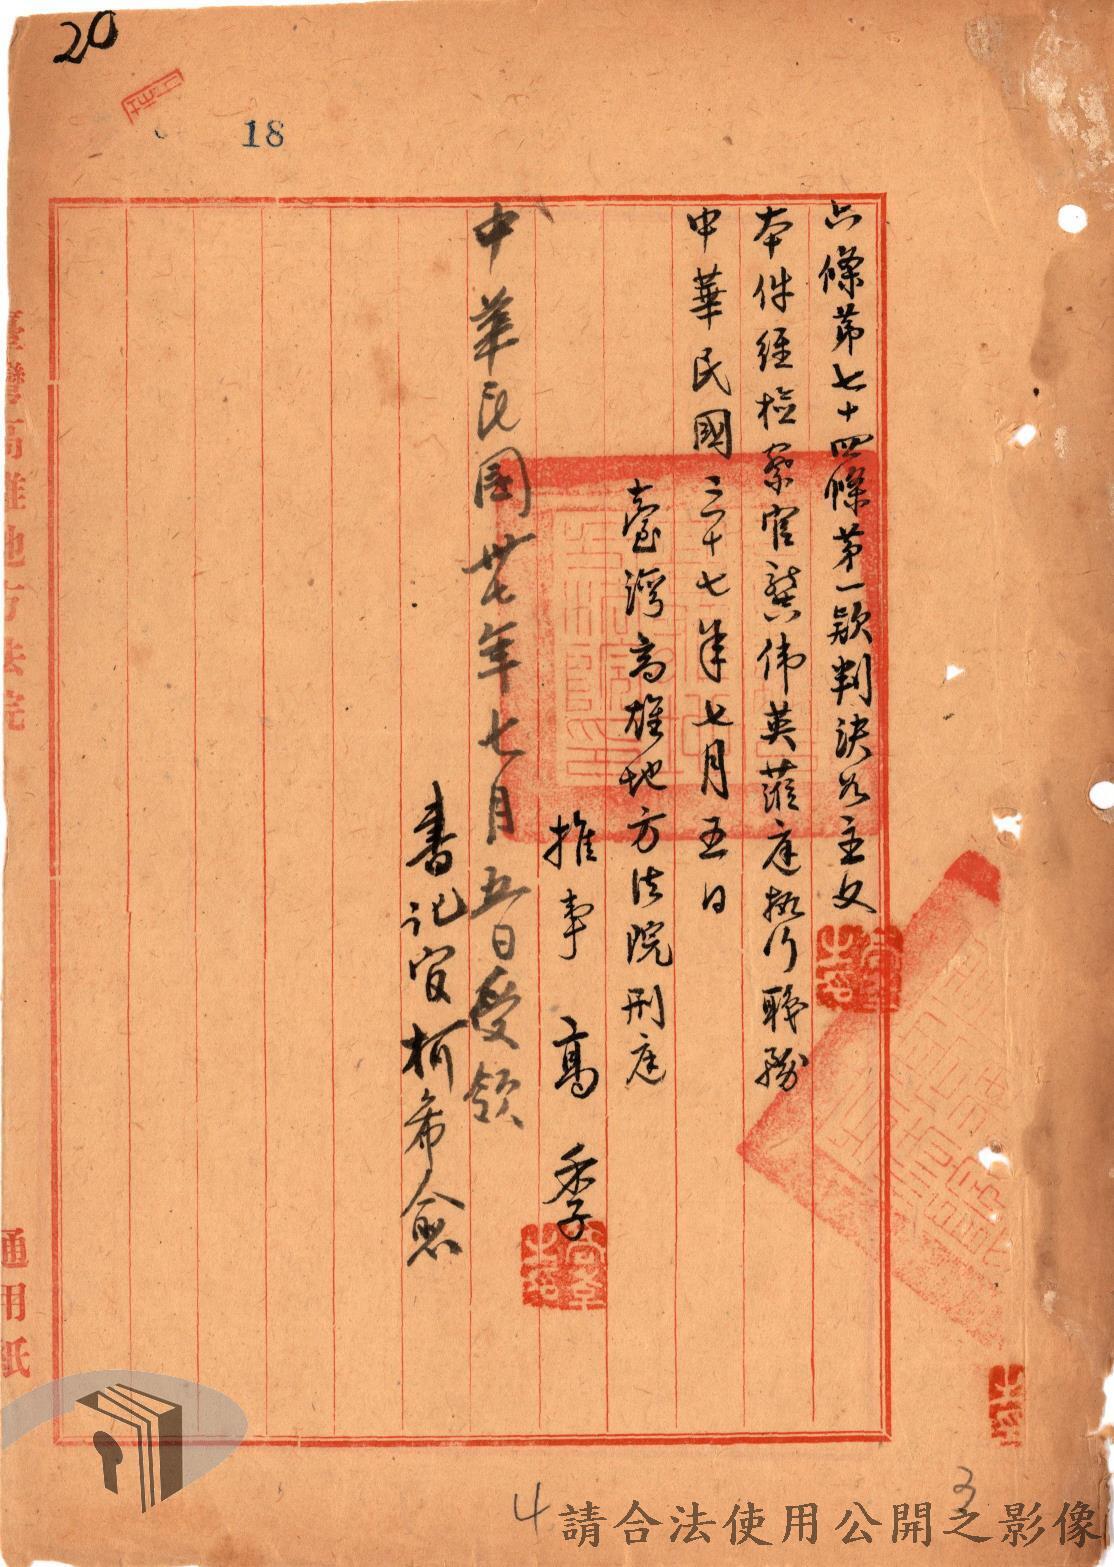 20
18
六條第七十四條第一款判決如主文
本件經檢察官龔偉英蒞庭執行職務
中華民國三十七年七月五日
臺灣高雄地方法院刑庭
推事 高季
中華民國卅七年七月五日受領
書記官柯希愈
臺灣高雄地方法院
通用紙
4
3
請合法使用公開之影像